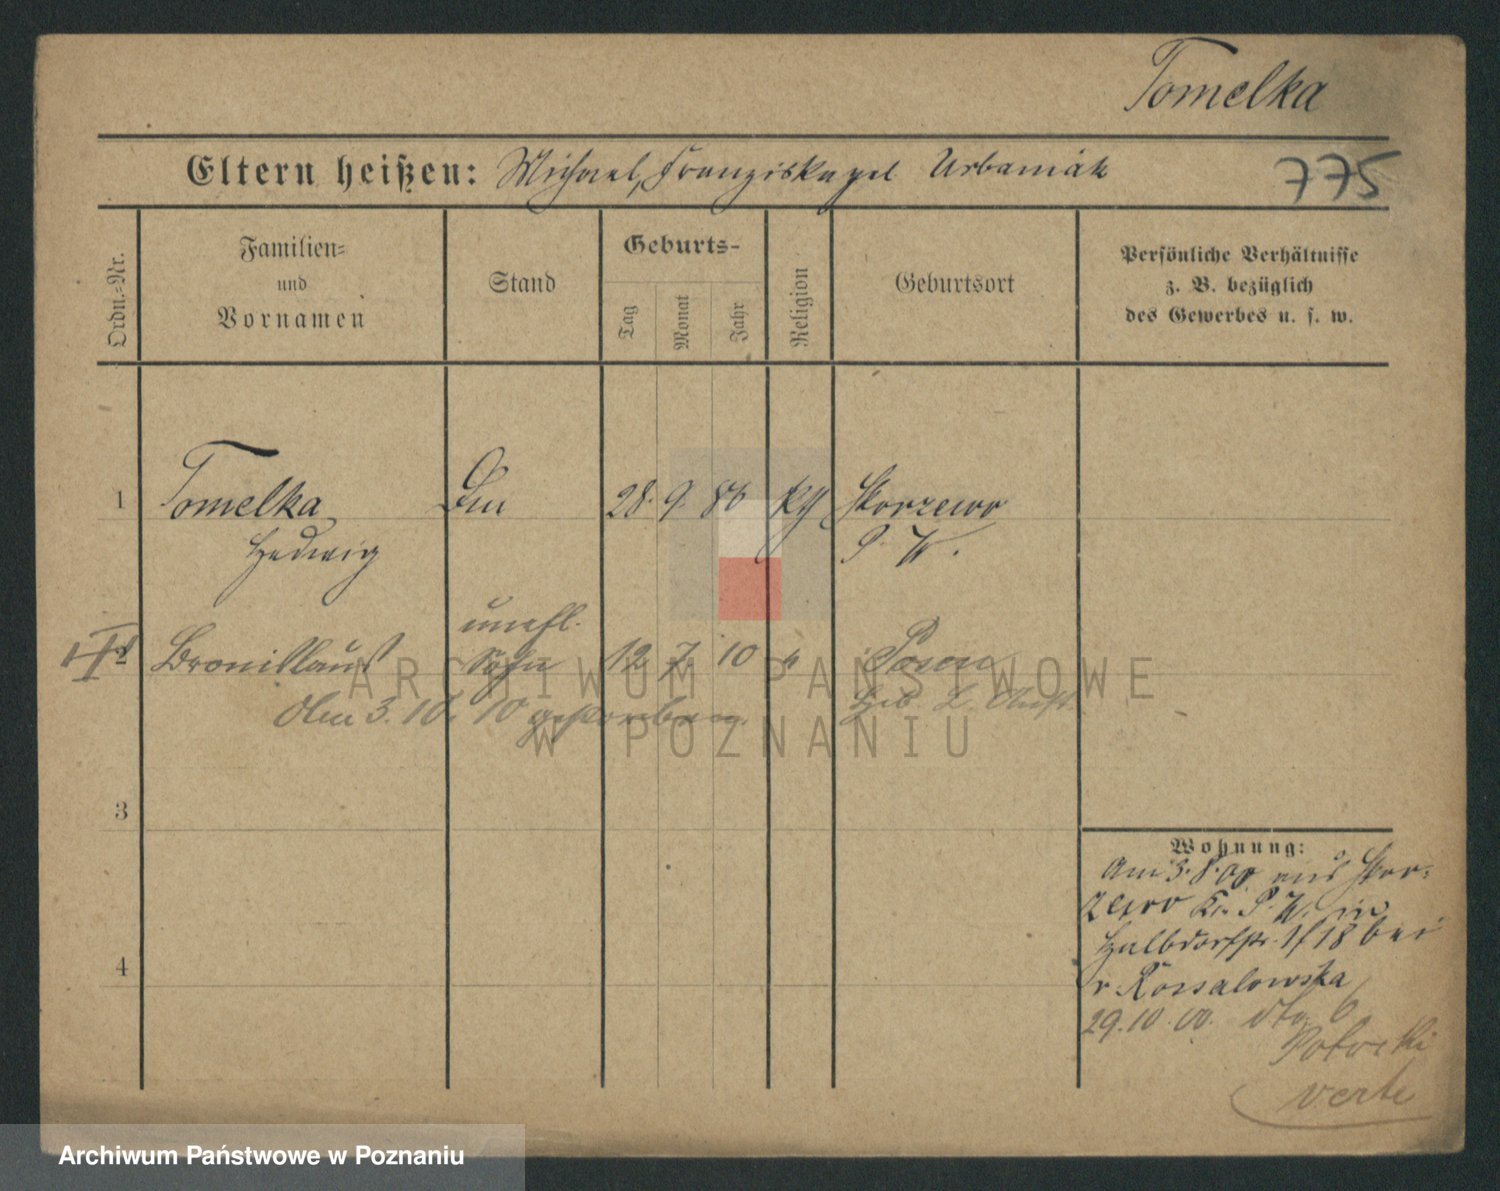 Tomelka
Eltern heißen: Michael, Franziska gel Urbaniak
775
Ordn.-Nr.
Familien- und Vornamen
Stand
Geburts-
Tag
Monat
Jahr
Religion
Geburtsort
Persönliche Verhältnisse
z. B. bezüglich
des Gewerbes u. s. w.
1 Tomelka 28. 9. 86 Skorzewo
Hedwig P. W.
unehl.
2 Bronislaus Sohn 12 7 10 " Posen
Am 3. 10. 10 gestorben. Heb. L. Anst.
3
4
Wohnung:
Am 3. 8. 00 aus Skor-
zewo Kr. P. W. in
Halbdorfstr. 1/18 bei
v Kossalowska
29. 10. 00. dto 6
verte
ARCHIWUM PAŃSTWOWE
W POZNANIU
Archiwum Państwowe w Poznaniu